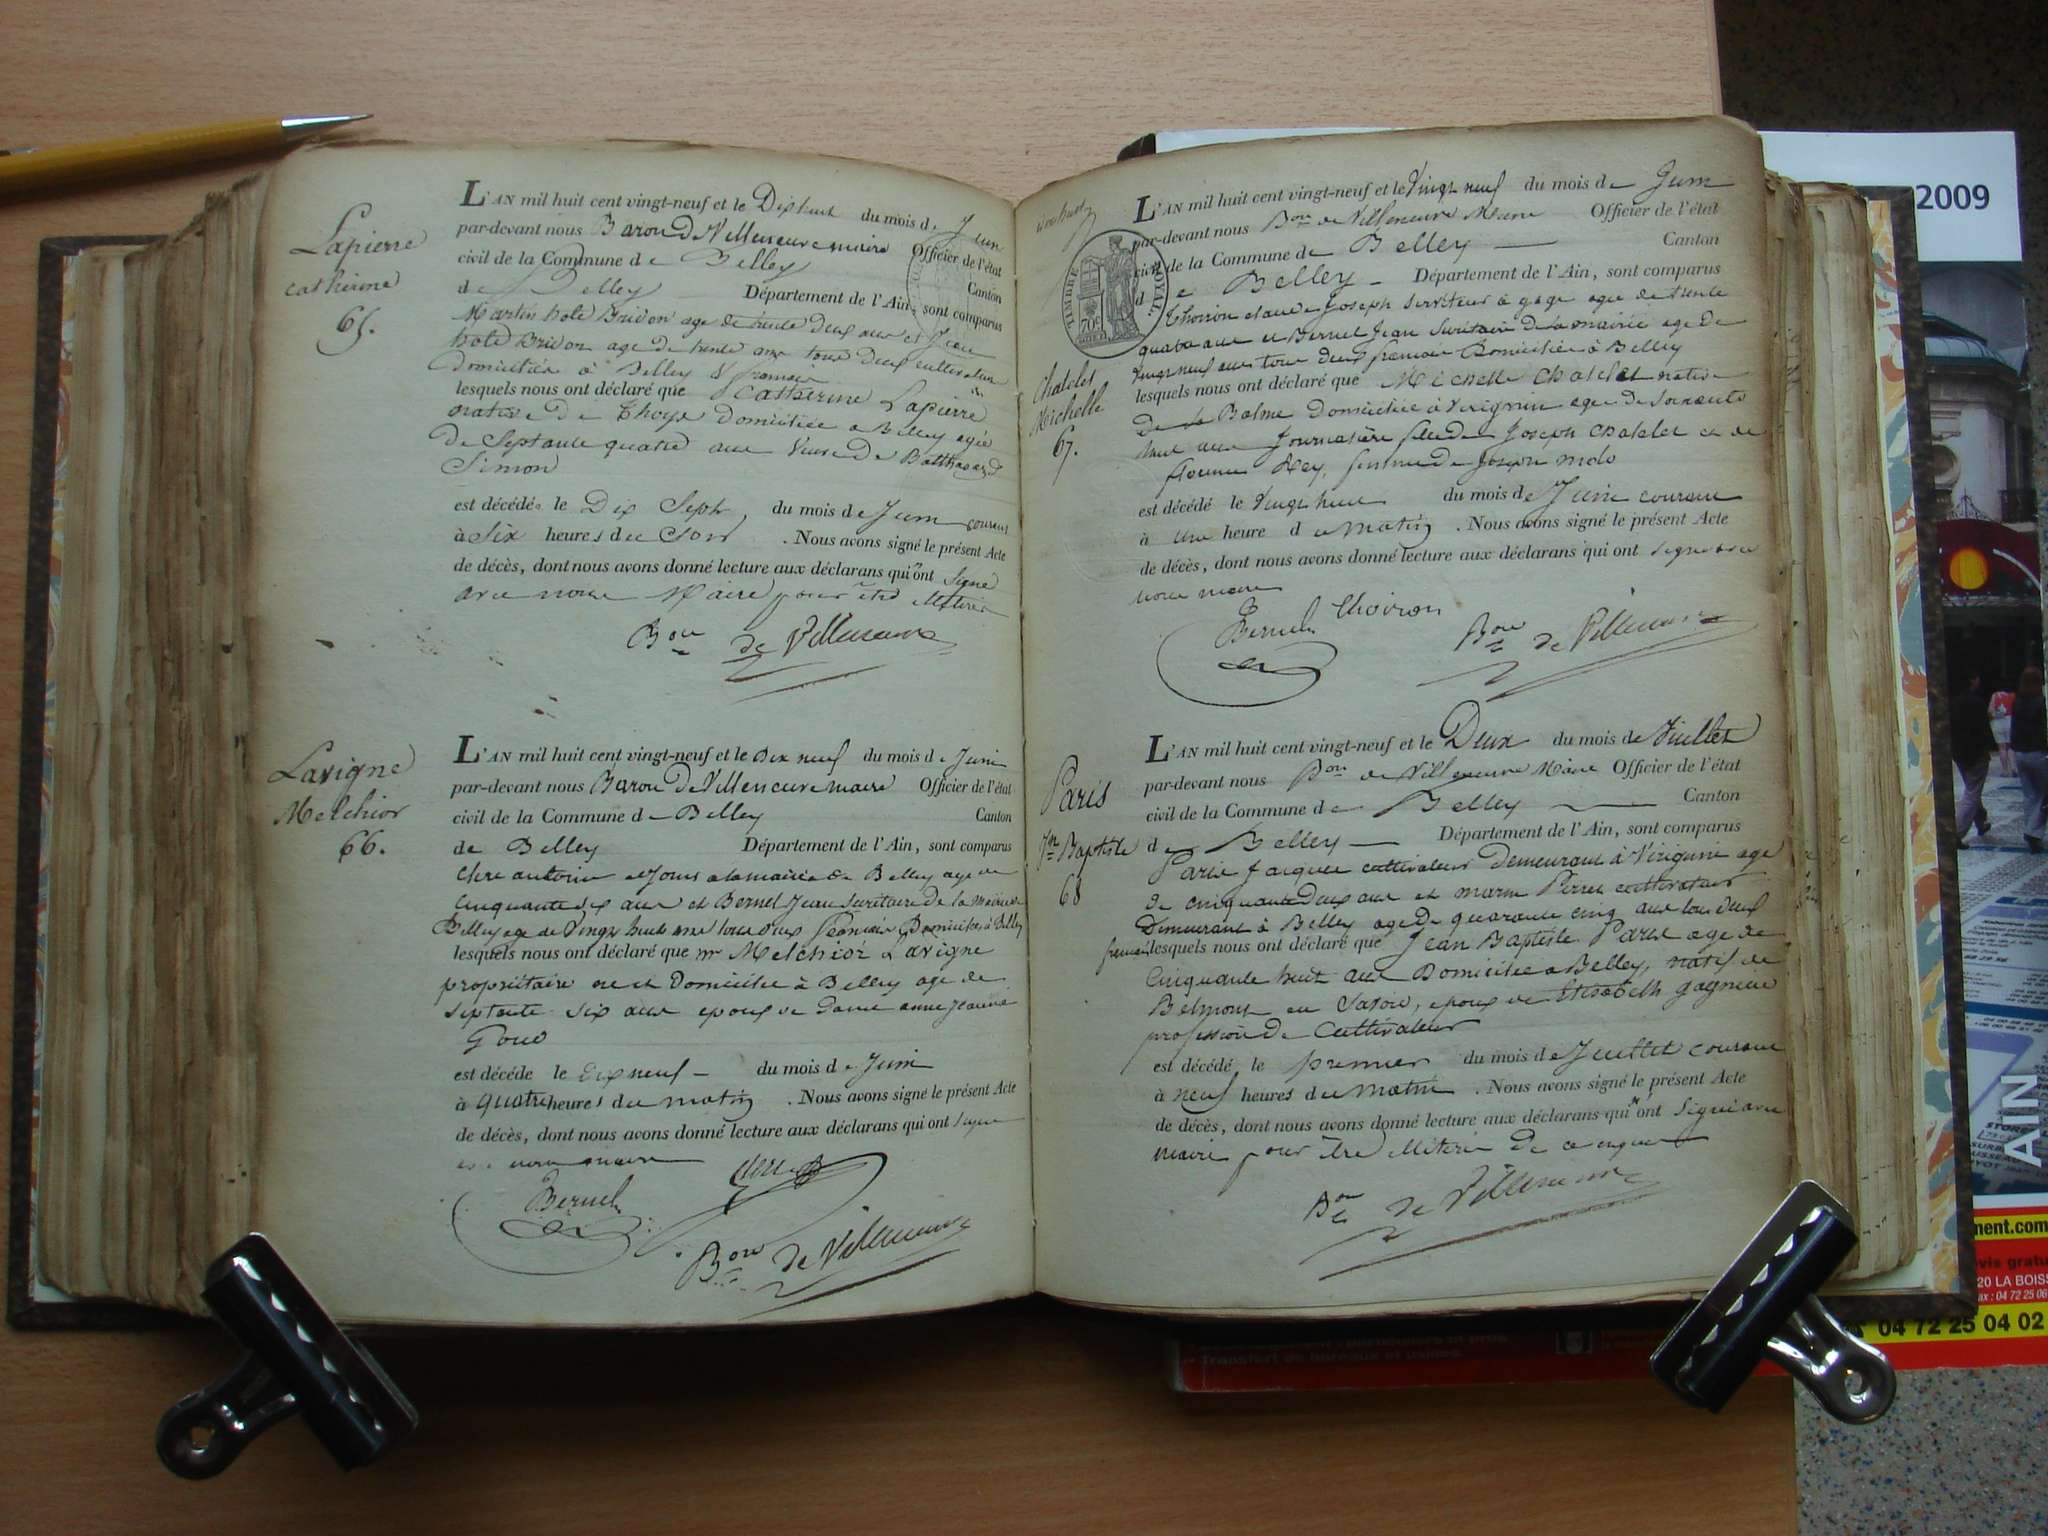 Lapierre
catherine
65.
L'AN mil huit cent vingt-neuf et le Dix huit du mois de Juin
par-devant nous Baron De Villeneuve maire Officier de l'état
civil de la Commune de Belley Canton
de Belley Département de l'Ain, sont comparus
Martin hote Bridon age de trente Deux ans et Jean
hote Bridon age de trente ans tous deux cultivateurs
Domiciliés à Belley & français
lesquels nous ont déclaré que Catherine Lapierre
native De Thoys Domiciliée a Belley agée
De Septante quatre ans Veuve De Balthazard
Simon
est décédé le Dix Sept du mois de Juin courant
à Six heures du Soir . Nous avons signé le présent Acte
de décès, dont nous avons donné lecture aux déclarans qui ont Signé
avec nous Maire pour être
Bon de Villeneuve
Lavigne
Melchior
66.
L'AN mil huit cent vingt-neuf et le Dix neuf du mois de Juin
par-devant nous Baron De Villeneuve maire Officier de l'état
civil de la Commune de Belley Canton
de Belley Département de l'Ain, sont comparus
antoine a la mairie de Belley age de
Cinquante six ans et Bernel Jean Secrétaire De la mairie de
Belley age de Vingt huit ans tous deux français Domiciliés à Belley
lesquels nous ont déclaré que mr Melchior Lavigne
propriétaire né et Domicilié à Belley age de
septante six ans epoux de Dame anne Jeanne
est décédé le dix neuf du mois de Juin
à quatre heures du matin . Nous avons signé le présent Acte
de décès, dont nous avons donné lecture aux déclarans qui ont signé
nous maire
Bernel
Bon de Villeneuve
TIMBRE ROYAL
70c
Chatelet
Michelle
67.
L'AN mil huit cent vingt-neuf et le Vingt neuf du mois de Juin
par-devant nous Bon de Villeneuve Maire Officier de l'état
civil de la Commune de Belley Canton
de Belley Département de l'Ain, sont comparus
Thoiron claude Joseph serviteur a gage age de trente
quatre ans et Bernel Jean Secrétaire De la mairie age De
Vingt neuf ans tous deux français Domiciliés à Belley
lesquels nous ont déclaré que Michelle Chatelet native
De la Balme Domiciliée à Virignin agée de soixante
huit ans Journalière fille de Joseph Chatelet et de
Rey, femme de Joseph
est décédé le Vingt huit du mois de Juin courant
à une heure du matin . Nous avons signé le présent Acte
de décès, dont nous avons donné lecture aux déclarans qui ont signé avec
nous maire
Bernel Thoiron Bon de Villeneuve
Paris
Jn Baptiste
68
L'AN mil huit cent vingt-neuf et le Deux du mois de Juillet
par-devant nous Bon de Villeneuve Maire Officier de l'état
civil de la Commune de Belley Canton
de Belley Département de l'Ain, sont comparus
Paris Jacques cultivateur Demeurant à Virignin age
de cinquante deux ans et Perret cultivateur
Demeurant à Belley age De quarante cinq ans tous deux
français lesquels nous ont déclaré que Jean Baptiste Paris age de
Cinquante huit ans Domicilié a Belley, natif de
Belmont en Savoie, epoux de Elisabeth
profession De Cultivateur
est décédé le premier du mois de Juillet courant
à neuf heures du matin . Nous avons signé le présent Acte
de décès, dont nous avons donné lecture aux déclarans qui n'ont signé avec
maire pour être de ce
Bon de Villeneuve
2009
AIN
ment.com
evis gratu
20 LA BOISS
04 72 25 04 02